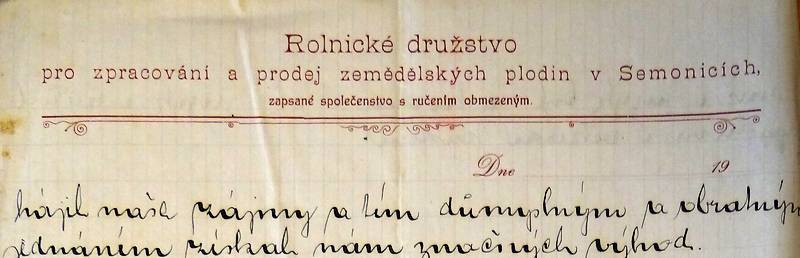 Rolnické družstvo
pro zpracování a prodej zemědělských plodin v Semonicích,
zapsané společenstvo s ručením obmezeným.
Dne 19
hájil naše zájmy a tím důmyslným a obratným
jednáním získal nám značných výhod.